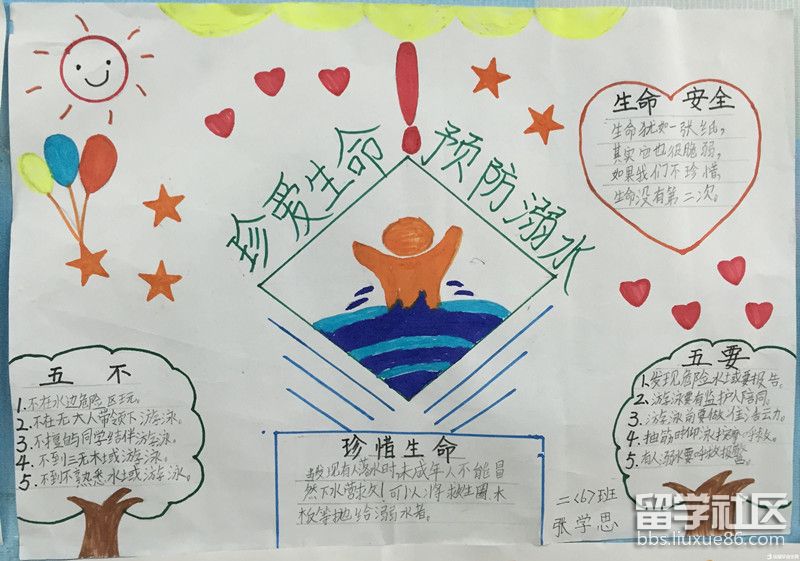 珍爱生命
！
预防溺水
生命 安全
生命犹如一张纸，
其实它也很脆弱，
如果我们不珍惜，
生命没有第二次。
五 不
1.不在水边危险区玩。
2.不在无大人带领下游泳。
3.不擅与同学结伴游泳。
4.不到三无水域游泳。
5.不到不熟悉水域游泳。
五 要
1.发现危险水域要报告。
2.游泳要有监护人陪同。
3.游泳前要做准活动。
4.抽筋时仰泳呼救。
5.有人溺水要呼救报警。
珍惜生命
发现有人溺水时未成年人不能冒
然下水营救，可以将救生圈、木
板等抛给溺水者。
二<6>班
张学思
留学社区
bbs.liuxue86.com